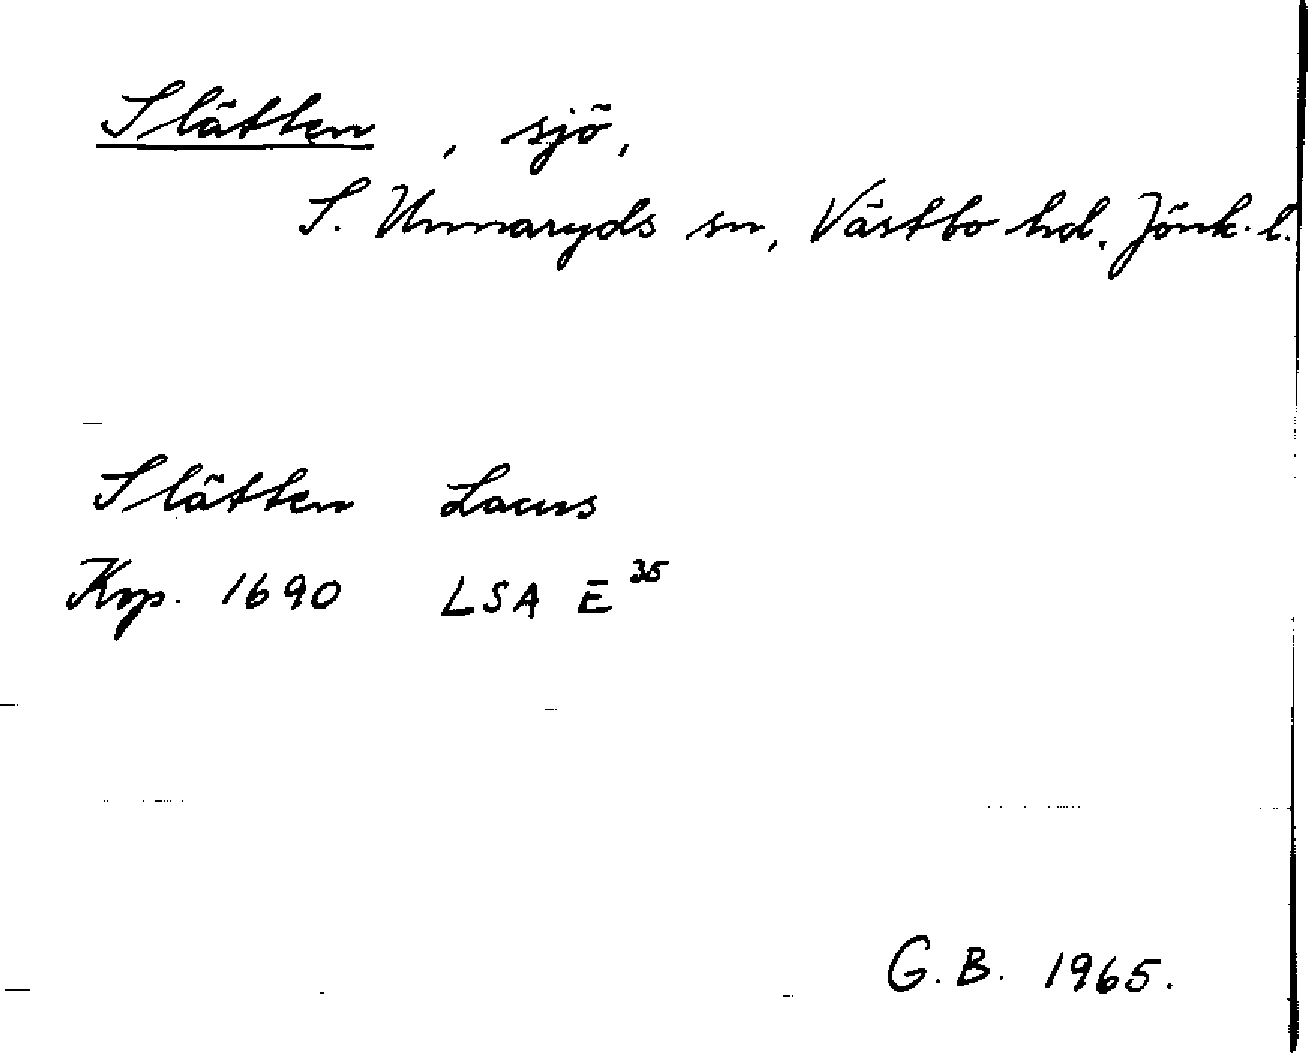 Slätten, sjö,
S. Unnaryds sn, Västbo hd. Jönk. l.
Slätten Lacus
Krp. 1690 LSA E 35
G. B. 1965.